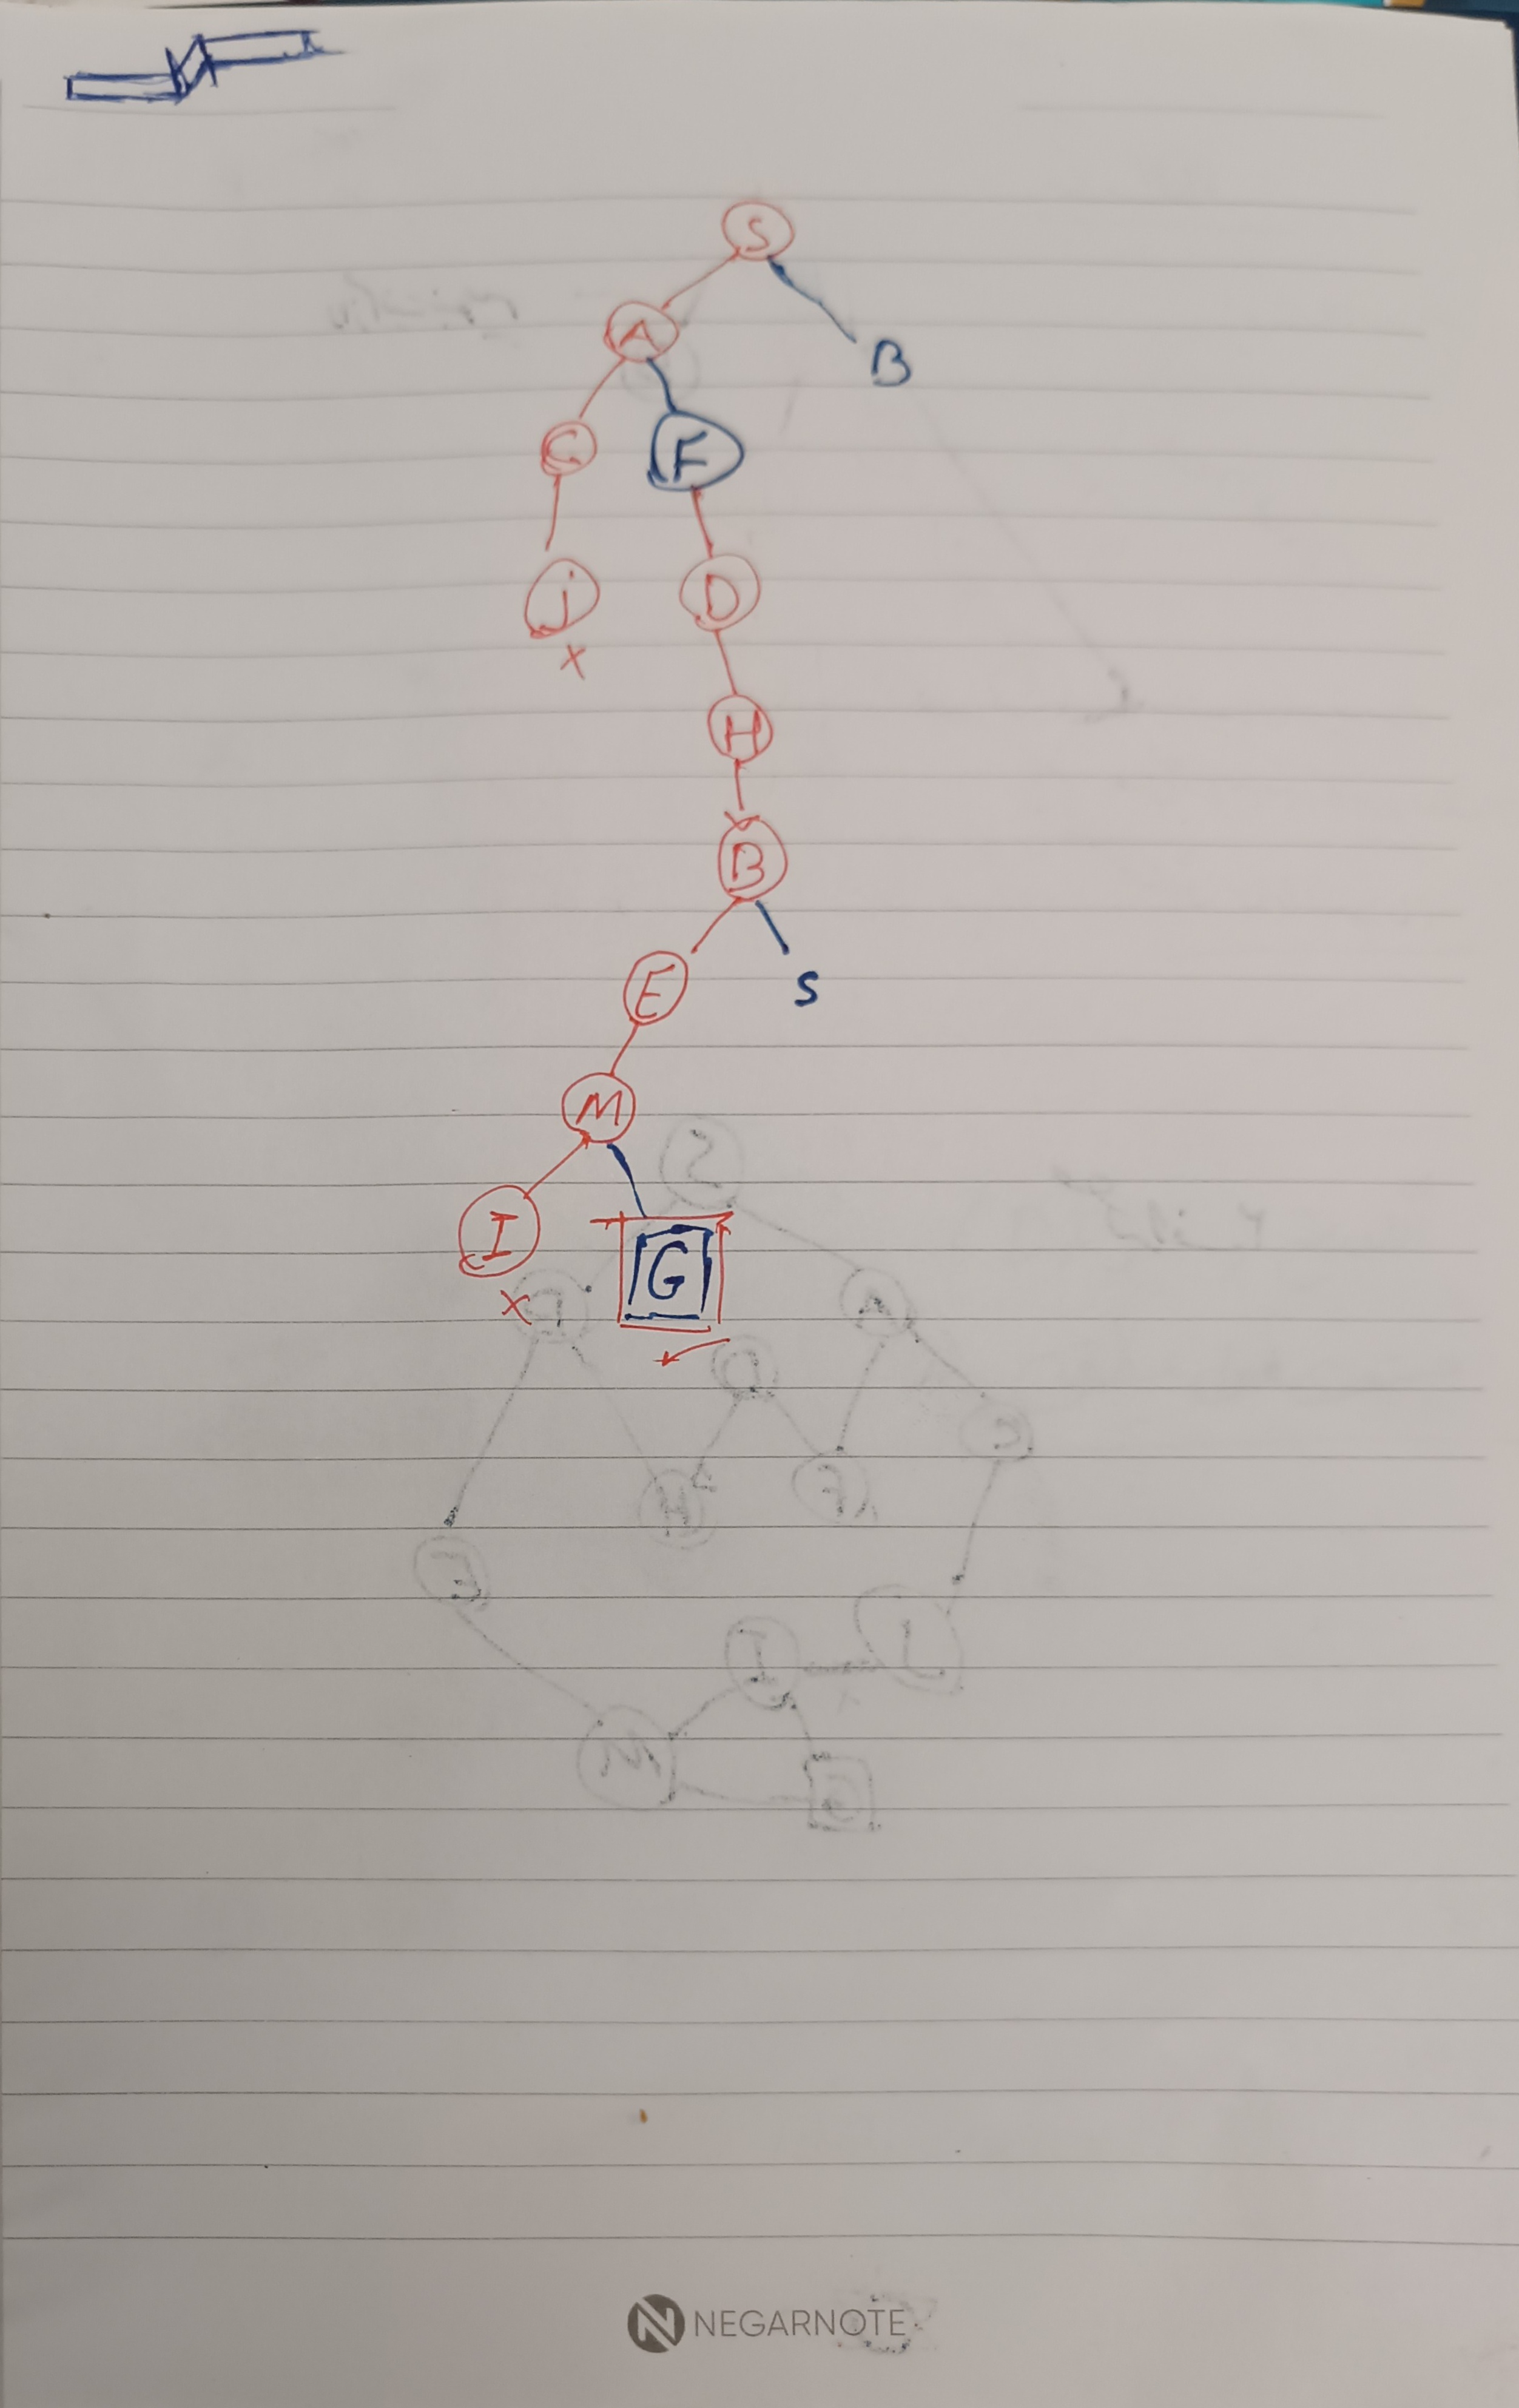 S
A
B
C
F
j
D
H
B
E
S
M
I
G
NEGARNOTE